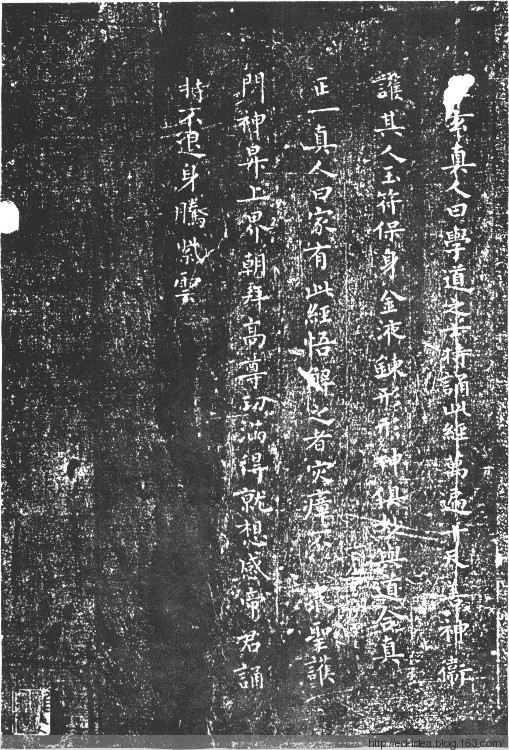 玄真人曰學道之士持誦此經萬遍十天善神衛
護其人玉符保身金液鍊形形神俱妙與道合真
正一真人曰家有此經悟解之者灾瘴不聖護
門神昇上界朝拜高尊功滿得就想感帝君誦
持不退身騰紫雲
http://ed-idea.blog.163.com/